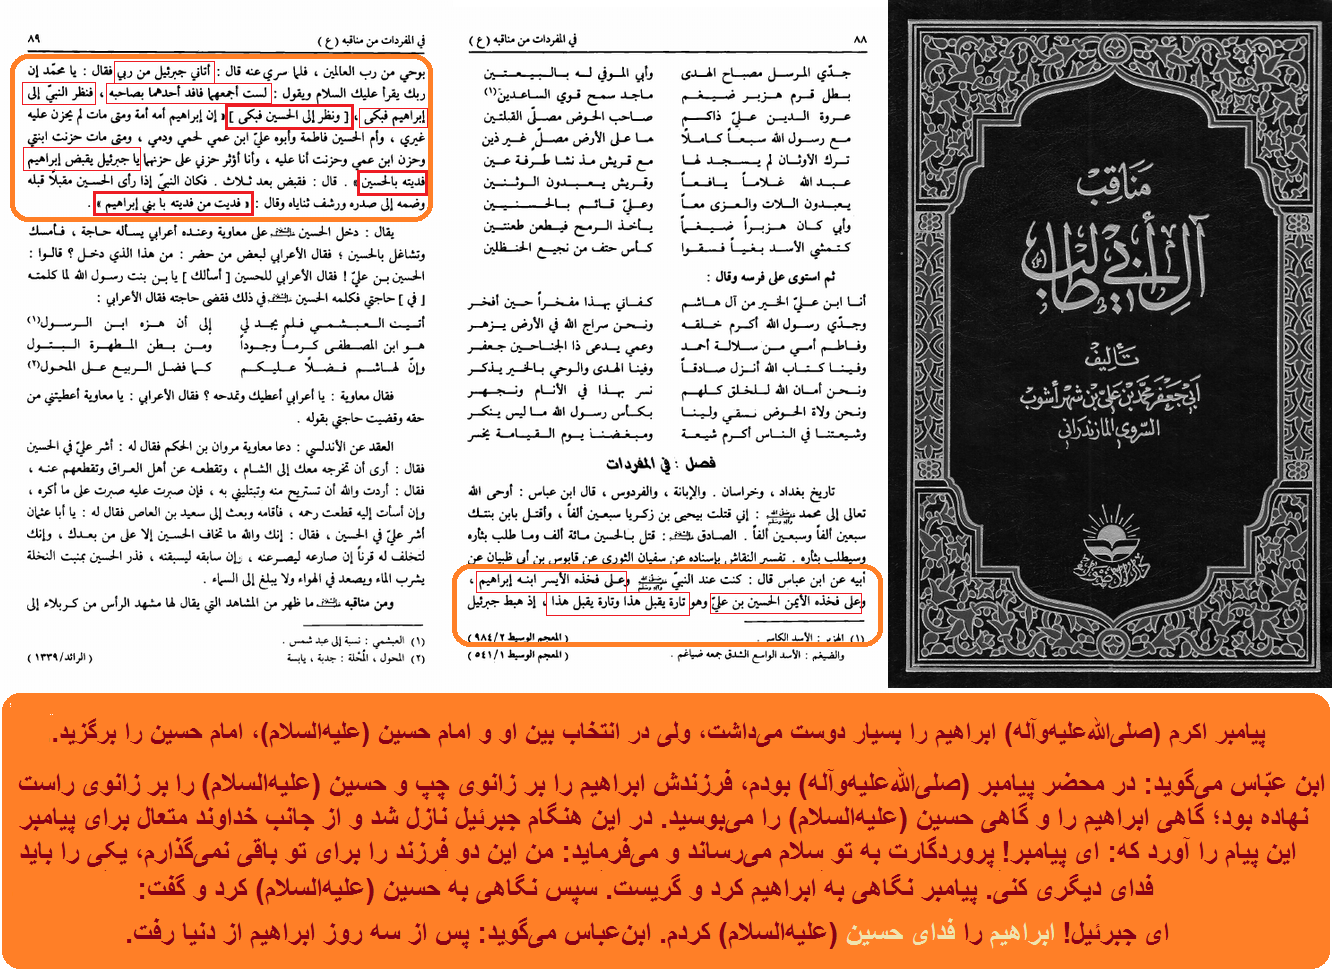 مناقب
آل أبي طالب
تأليف
أبي جعفر محمد بن علي بن شهر آشوب
السروي المازندراني
٨٨
في المفردات من مناقبه (ع)
جدّي المرسل مصباح الهدى وأبي الموفي له بالبيعتين
بطل قرم هزبر ضيغم ماجد سمح قوي الساعدين(١)
عروة الدين عليّ ذاكم صاحب الحوض مصلّى القبلتين
مع رسول الله سبعاً كاملاً ما على الأرض مصلّ غير ذين
ترك الأوثان لم يسجد لها مع قريش مذ نشا طرفة عين
عبد الله غلاماً يافعاً وقريش يعبدون الوثنين
يعبدون اللات والعزى معاً وعليّ قائم بالحسنيين
وأبي كان هزبراً ضيغماً يأخذ الرمح فيطعن طعنتين
كتمشي الأسد بغياً فسقوا كأس حتف من نجيع الحنظلين
ثم استوى على فرسه وقال :
أنا ابن عليّ الخير من آل هاشم كفاني بهذا مفخراً حين أفخر
وجدّي رسول الله أكرم خلقه ونحن سراج الله في الأرض يزهر
وفاطم أمي من سلالة أحمد وعمي يدعى ذا الجناحين جعفر
وفينا كتاب الله أنزل صادقاً وفينا الهدى والوحي بالخير يذكر
ونحن أمان الله للخلق كلهم نسر بهذا في الأنام ونجهر
ونحن ولاة الحوض نسقي ولينا بكأس رسول الله ما ليس ينكر
وشيعتنا في الناس أكرم شيعة ومبغضنا يوم القيامة يخسر
فصل : في المفردات
تاريخ بغداد ، وخراسان . والإبانة ، والفردوس ، قال ابن عباس : أوحى الله
تعالى إلى محمد ﷺ : إني قتلت بيحيى بن زكريا سبعين ألفاً ، وأقتل بابن بنتك
سبعين ألفاً وسبعين ألفاً . الصادق عليه السلام : قتل بالحسين مائة ألف وما طلب بثأره
وسيطلب بثأره . تفسير النقاش بإسناده عن سفيان الثوري عن قابوس بن أبي ظبيان عن
أبيه عن ابن عباس قال : كنت عند النبيّ ﷺ وعلى فخذه الأيسر ابنه إبراهيم ،
وعلى فخذه الأيمن الحسين بن عليّ وهو تارة يقبل هذا وتارة يقبل هذا ، إذ هبط جبرئيل
(١) الهزبر : الأسد الكاسر . ( المعجم الوسيط ٢/٩٨٤ )
والضيغم : الأسد الواسع الشدق جمعه ضياغم . ( المعجم الوسيط ١/٥٤١ )
في المفردات من مناقبه (ع)
٨٩
بوحي من رب العالمين ، فلما سري عنه قال : أتاني جبرئيل من ربي فقال : يا محمّد إن
ربك يقرأ عليك السلام ويقول : لست أجمعهما فافد أحدهما بصاحبه ، فنظر النبيّ إلى
إبراهيم فبكى ، [ ونظر إلى الحسين فبكى ] « إن إبراهيم أمه أمة ومتى مات لم يحزن عليه
غيري ، وأم الحسين فاطمة وأبوه عليّ ابن عمي لحمي ودمي ، ومتى مات حزنت ابنتي
وحزن ابن عمي وحزنت أنا عليه ، وأنا أؤثر حزني على حزنهما يا جبرئيل يقبض إبراهيم
فديته بالحسين » . قال : فقبض بعد ثلاث . فكان النبيّ إذا رأى الحسين مقبلاً قبله
وضمه إلى صدره ورشف ثناياه وقال : « فديت من فديته بابني إبراهيم » .
يقال : دخل الحسين عليه السلام على معاوية وعنده أعرابي يسأله حاجة ، فأمسك
وتشاغل بالحسين ؛ فقال الأعرابي لبعض من حضر : من هذا الذي دخل ؟ قالوا :
الحسين بن عليّ ! فقال الأعرابي للحسين [ أسألك ] يا بن بنت رسول الله لما كلمته
[ في ] حاجتي فكلمه الحسين عليه السلام في ذلك فقضى حاجته فقال الأعرابي :
أتيت العبشمي فلم يجد لي إلى أن هزه ابن الرسول(١)
هو ابن المصطفى كرماً وجوداً ومن بطن المطهرة البتول
وإنّ لهاشم فضلاً عليكم كما فضل الربيع على المحول(٢)
فقال معاوية : يا أعرابي أعطيك وتمدحه ؟ فقال الأعرابي : يا معاوية أعطيتني من
حقه وقضيت حاجتي بقوله .
العقد عن الأندلسي : دعا معاوية مروان بن الحكم فقال له : أشر عليّ في الحسين
فقال : أرى أن تخرجه معك إلى الشام ، وتقطعه عن أهل العراق وتقطعهم عنه ،
فقال : أردت والله أن تستريح منه وتبتليني به ، فإن صبرت عليه صبرت على ما أكره ،
وإن أسأت إليه قطعت رحمه ، فأقامه وبعث إلى سعيد بن العاص فقال له : يا أبا عثمان
أشر عليّ في الحسين ، فقال : إنك والله ما تخاف الحسين إلا على من بعدك ، وإنك
لتخلف له قرناً إن صارعه ليصرعنه ، وإن سابقه ليسبقنه ، فذر الحسين بمنبت النخلة
يشرب الماء ويصعد في الهواء ولا يبلغ إلى السماء .
ومن مناقبه عليه السلام ما ظهر من المشاهد التي يقال لها مشهد الرأس من كربلاء إلى
(١) العبشمي : نسبة إلى عبد شمس .
(٢) المحول ، المُحْلة : جدبة ، يابسة ( الرائد/١٣٣٩ )
پیامبر اکرم (صلی‌الله‌علیه‌وآله) ابراهیم را بسیار دوست می‌داشت، ولی در انتخاب بین او و امام حسین (علیه‌السلام)، امام حسین را برگزید.
ابن عبّاس می‌گوید: در محضر پیامبر (صلی‌الله‌علیه‌وآله) بودم، فرزندش ابراهیم را بر زانوی چپ و حسین (علیه‌السلام) را بر زانوی راست
نهاده بود؛ گاهی ابراهیم را و گاهی حسین (علیه‌السلام) را می‌بوسید. در این هنگام جبرئیل نازل شد و از جانب خداوند متعال برای پیامبر
این پیام را آورد که: ای پیامبر! پروردگارت به تو سلام می‌رساند و می‌فرماید: من این دو فرزند را برای تو باقی نمی‌گذارم، یکی را باید
فدای دیگری کنی. پیامبر نگاهی به ابراهیم کرد و گریست. سپس نگاهی به حسین (علیه‌السلام) کرد و گفت:
ای جبرئیل! ابراهیم را فدای حسین (علیه‌السلام) کردم. ابن‌عباس می‌گوید: پس از سه روز ابراهیم از دنیا رفت.